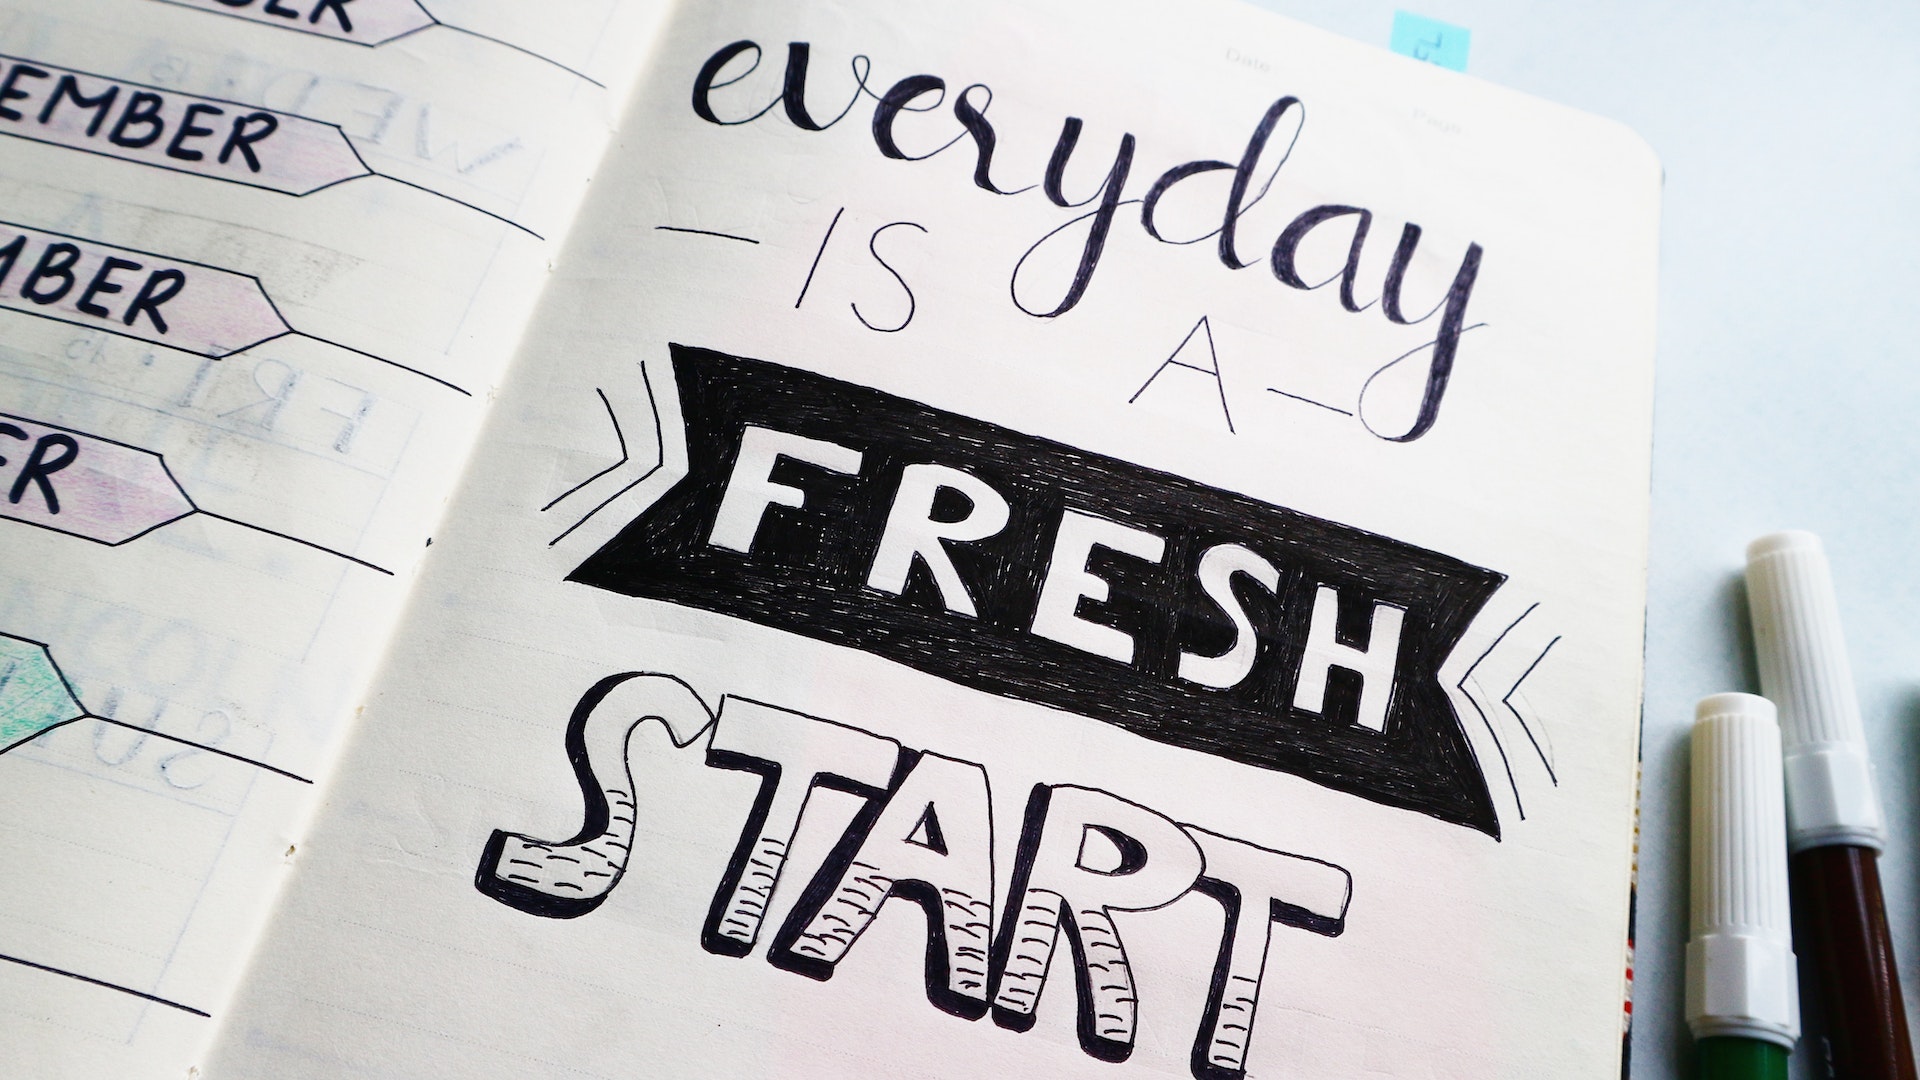 BER
EMBER
MBER
ER
Date
Page
everyday
— IS A —
FRESH
START